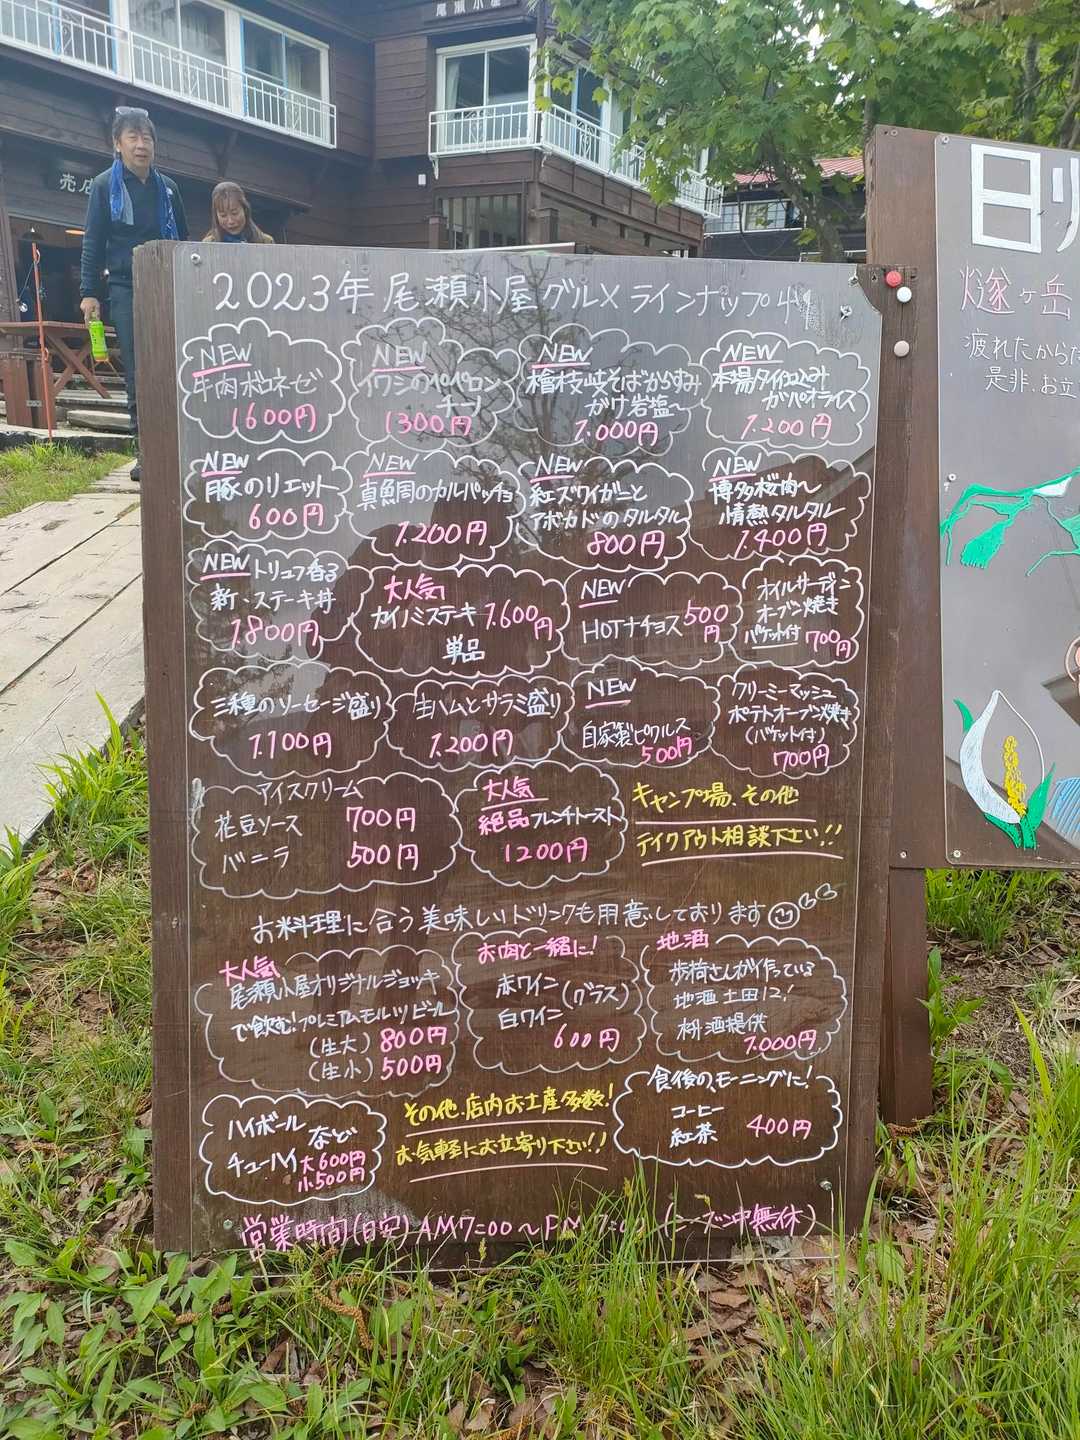 尾瀬小屋
売店
2023年 尾瀬小屋グルメ ラインナップ
NEW
牛肉ボロネーゼ
1600円
NEW
イワシのペペロン
チーノ
1300円
NEW
檜枝岐そばからすみ
がけ岩塩〜
1.000円
NEW
本場タイ
ガパオライス
1.200円
NEW
豚のリエット
600円
NEW
真鯛のカルパッチョ
1.200円
NEW
紅ズワイガニと
アボカドのタルタル
800円
NEW
博多桜肉〜
情熱タルタル
1.400円
NEW トリュフ香る
新・ステーキ丼
1.800円
大人気
カイノミステーキ 1.600円
単品
NEW
HOTナチョス 500円
オイルサーディン
オーブン焼き
バケット付 700円
三種のソーセージ盛り
1.100円
生ハムとサラミ盛り
1.200円
NEW
自家製ピクルス
500円
クリーミーマッシュ
ポテトオーブン焼き
(バケット付)
700円
アイスクリーム
花豆ソース 700円
バニラ 500円
大人気
絶品フレンチトースト
1200円
キャンプ場、その他
テイクアウト相談下さい!!
お料理に合う美味しいドリンクも用意しております
大人気
尾瀬小屋オリジナルジョッキ
で飲む!プレミアムモルツビール
(生大) 800円
(生小) 500円
お肉と一緒に!
赤ワイン
(グラス)
白ワイン
600円
地酒
歩荷さんが作っている
地酒 土田12!
枡酒提供
1.000円
ハイボール
など
チューハイ 大600円
小500円
その他、店内お土産多数!
お気軽にお立寄り下さい!!
食後の、モーニングに!
コーヒー
紅茶
400円
営業時間(目安) AM7:00〜PM 7:00 (シーズン中無休)
燧ヶ岳
疲れたからだ
是非、お立